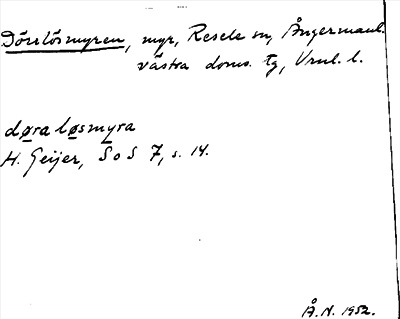 Dörrlösmyren, myr, Resele sn, Ångermanl.
västra doms. tg, Vrnl. l.
døra løsmyra
H. Geijer, SoS 7, s. 14.
Å.N. 1952.